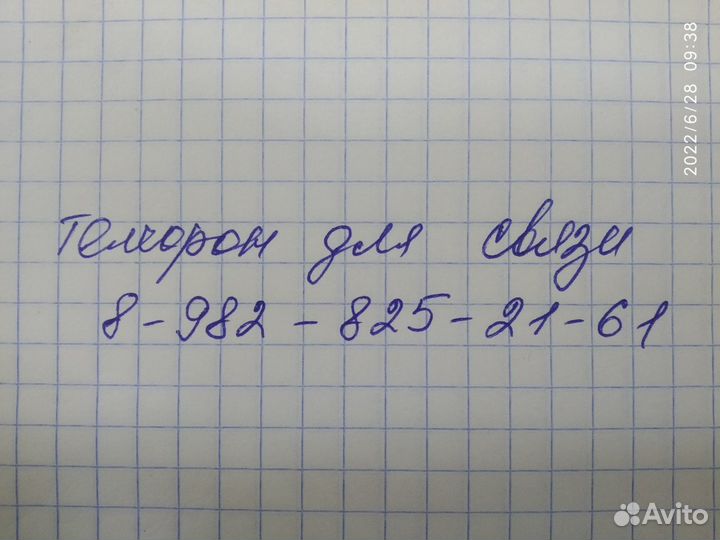 Телефон для связи
8-982-825-21-61
2022/6/28 09:38
Avito